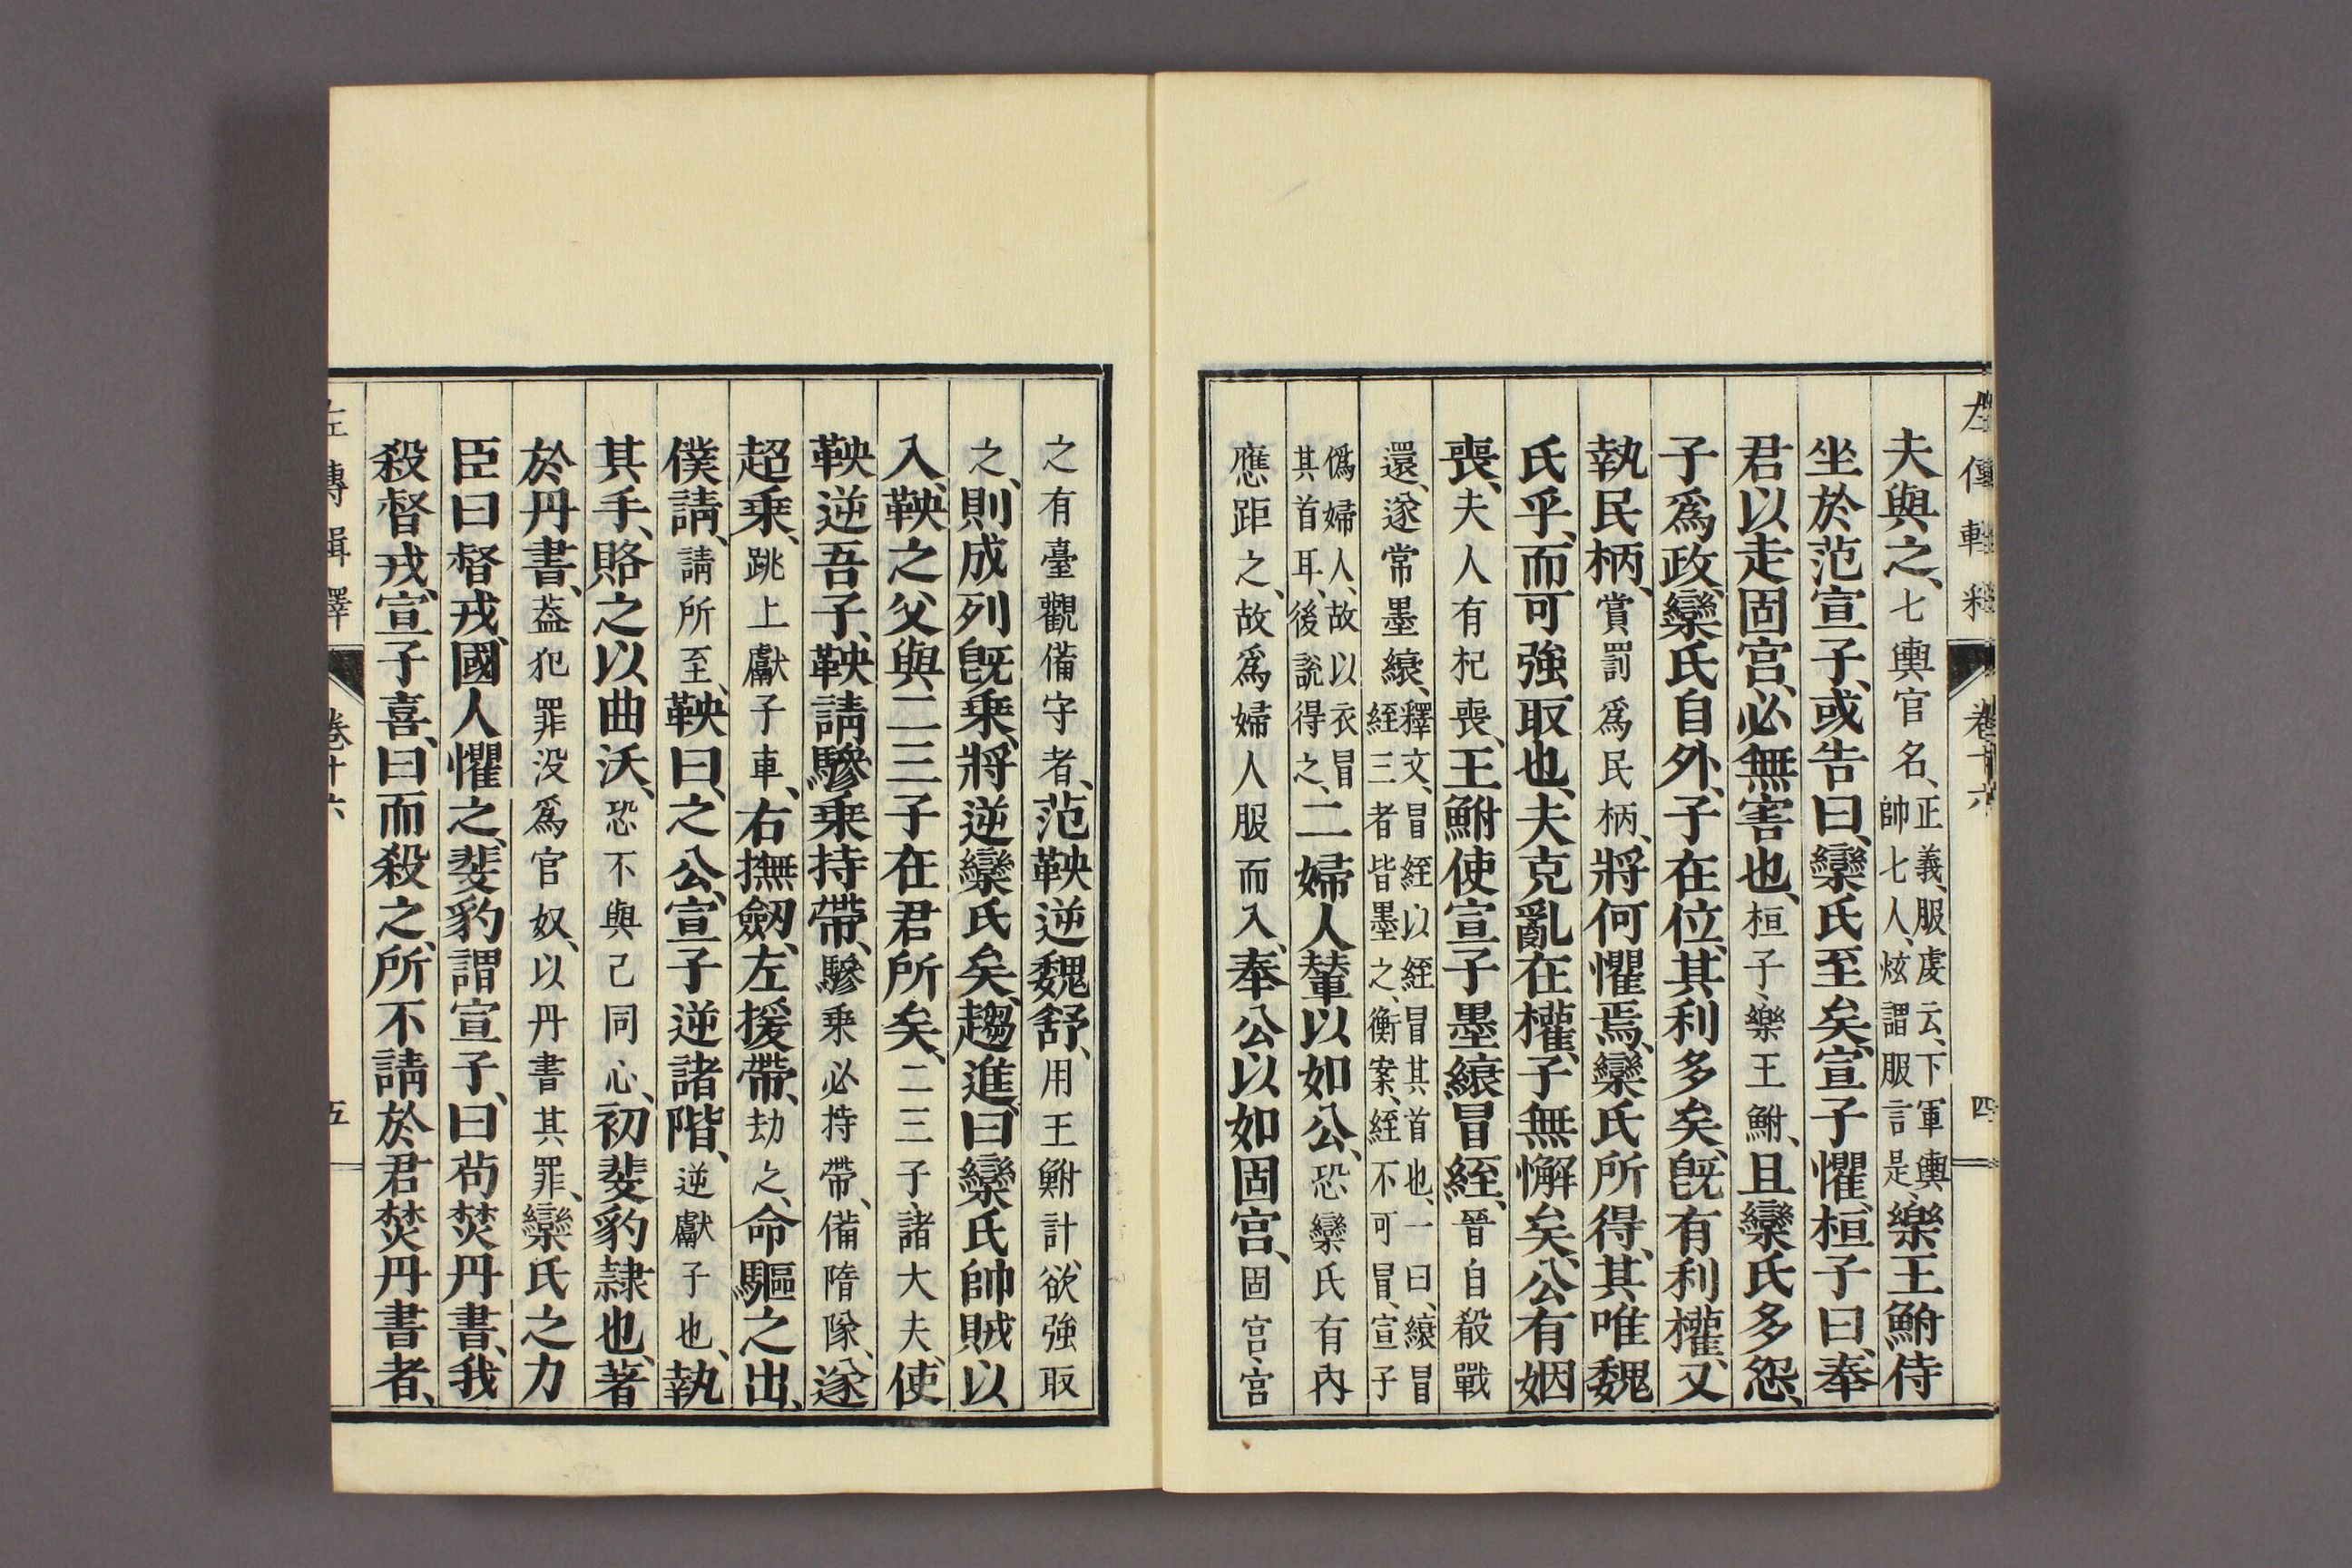 左傳輯釋 卷十六 四
夫與之、七輿官名、正義、服虔云、下軍輿帥七人、炫謂服言是、樂王鮒侍
坐於范宣子、或告曰、欒氏至矣、宣子懼、桓子曰、奉
君以走固宮、必無害也、桓子、樂王鮒、且欒氏多怨、
子爲政、欒氏自外、子在位、其利多矣、旣有利權、又
執民柄、賞罰爲民柄、將何懼焉、欒氏所得、其唯魏
氏乎、而可強取也、夫克亂在權、子無懈矣、公有姻
喪、夫人有杞喪、王鮒使宣子墨縗冒絰、晉自殽戰
還、遂常墨縗、釋文、冒絰以絰冒其首也、一曰、縗冒絰三者皆墨之、衡案、絰不可冒、宣子
僞婦人、故以衣冒其首耳、後說得之、二婦人輦以如公、恐欒氏有內
應距之、故爲婦人服而入、奉公以如固宮、固宮、宮
之有臺觀備守者、范鞅逆魏舒、用王鮒計、欲強取
之、則成列旣乘、將逆欒氏矣、趨進、曰、欒氏帥賊以
入、鞅之父與二三子在君所矣、二三子、諸大夫、使
鞅逆吾子、鞅請驂乘持帶、驂乘必持帶、備隋隊、遂
超乘、跳上獻子車、右撫劒、左援帶、劫之、命驅之出、
僕請、請所至、鞅曰、之公、宣子逆諸階、逆獻子也、執
其手、賂之以曲沃、恐不與己同心、初斐豹隷也、著
於丹書、蓋犯罪没爲官奴、以丹書其罪、欒氏之力
臣曰督戎、國人懼之、斐豹謂宣子、曰、苟焚丹書、我
殺督戎、宣子喜、曰、而殺之、所不請於君焚丹書者、
左傳輯釋 卷十六 五